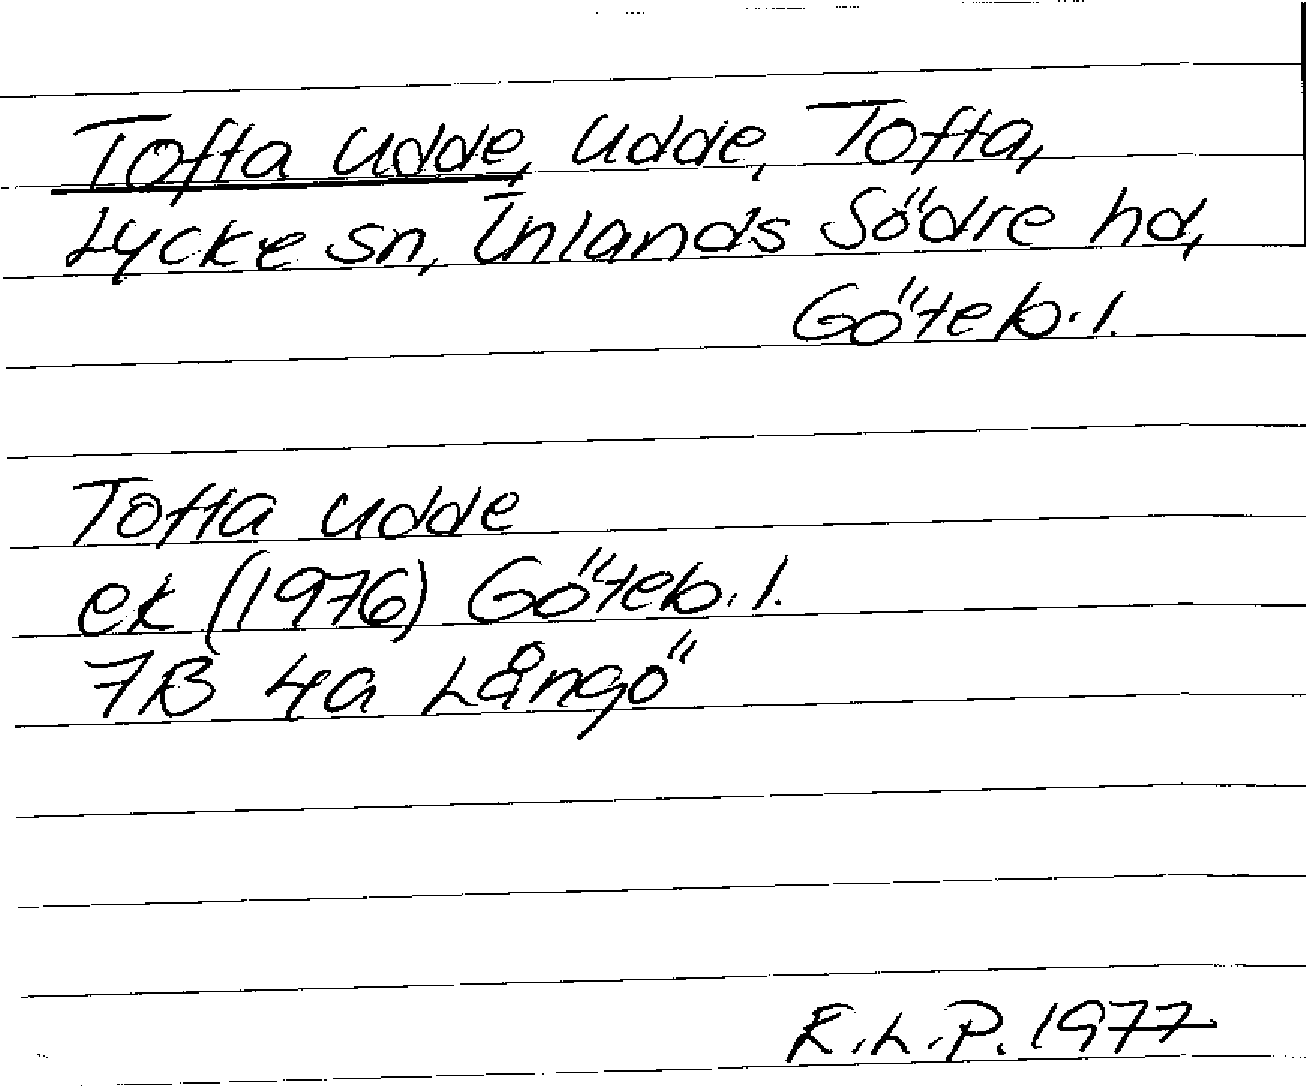 Tofta udde, udde, Tofta,
Lycke sn, Inlands Södre hd,
Göteb. l.
Tofta udde
ek (1976) Göteb. l.
7B 4a Långö
R.L.P. 1977